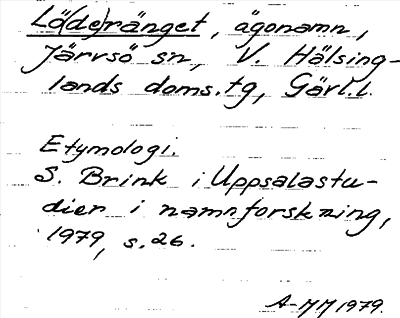 Lö(de)ränget, ägonamn,
Järvsö sn, V. Hälsing-
lands doms.tg, Gävl.l.
Etymologi.
S. Brink i Uppsalastu-
dier i namnforskning,
1979, s.26.
A-MM 1979.